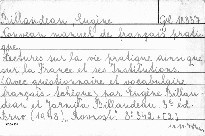 Billandeau Eugène Gd 11337
Nouveau manuel de français prati
que.
Lectures sur la vie pratique ainsi que
sur la France et ses Institutions.
(Avec questionnaire et vocabulaire
français-tchèque) par Eugène Billan-
deau et Jarmila Billandeau. 3e éd.
Brno (1948), Rovnost. 8o 342 + [2]